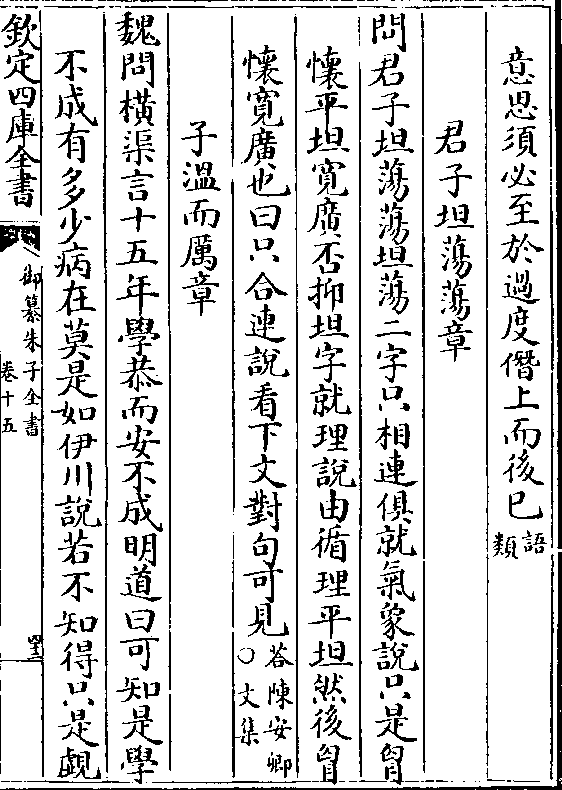 意思須必至於過度僭上而後已語類
君子坦蕩蕩章
問君子坦蕩蕩坦蕩二字只相連俱就氣象說只是胷
懷平坦寛廣否抑坦字就理說由循理平坦然後胷
懷寛廣也曰只合連說看下文對句可見答陳安卿○文集
子溫而厲章
魏問橫渠言十五年學恭而安不成明道曰可知是學
不成有多少病在莫是如伊川說若不知得只是覷
欽定四庫全書
御纂朱子全書
卷十五